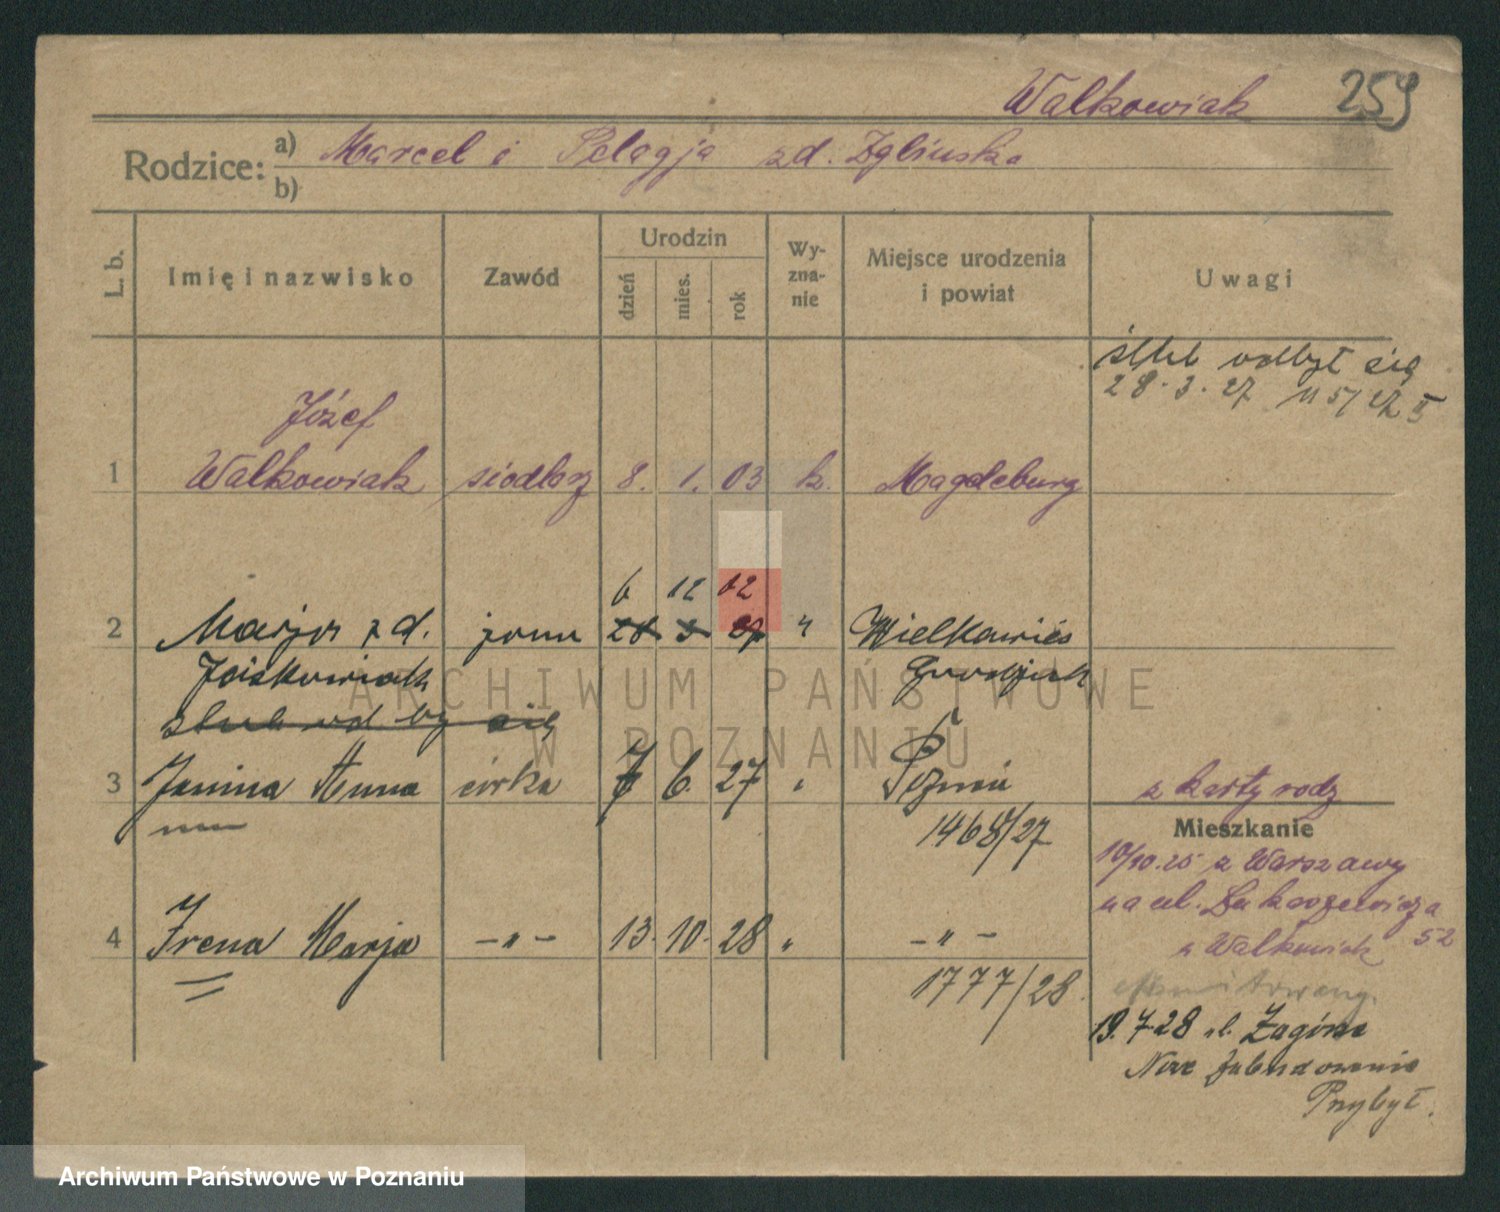 Walkowiak 259
Rodzice: a) Marcel i Pelagja zd. Zglińska
b)
L. b. Imię i nazwisko Zawód Urodzin dzień mies. rok Wy-zna-nie Miejsce urodzenia i powiat Uwagi
ślub odbył się
28.3.27
Józef
1 Walkowiak siodlarz 8. 1. 03 k. Magdeburg
6 12 02
2 Marja z d. żona 28 3 27 " Wielkawieś
Jaśkowiak Grodzisk
ślub odbył się
3 Janina Anna córka 7 6. 27 " Poznań
z karty rodz
1468/27
Mieszkanie
10/10.25 z Warszawy
na ul. Łukaszewicza
52
u Walkowiak
4 Irena Marja — " — 13. 10. 28 " — " —
1777/28.
19.7.28 ul. Żagórze
Nowe Zabudowanie
Przybył.
ARCHIWUM PAŃSTWOWE
W POZNANIU
Archiwum Państwowe w Poznaniu